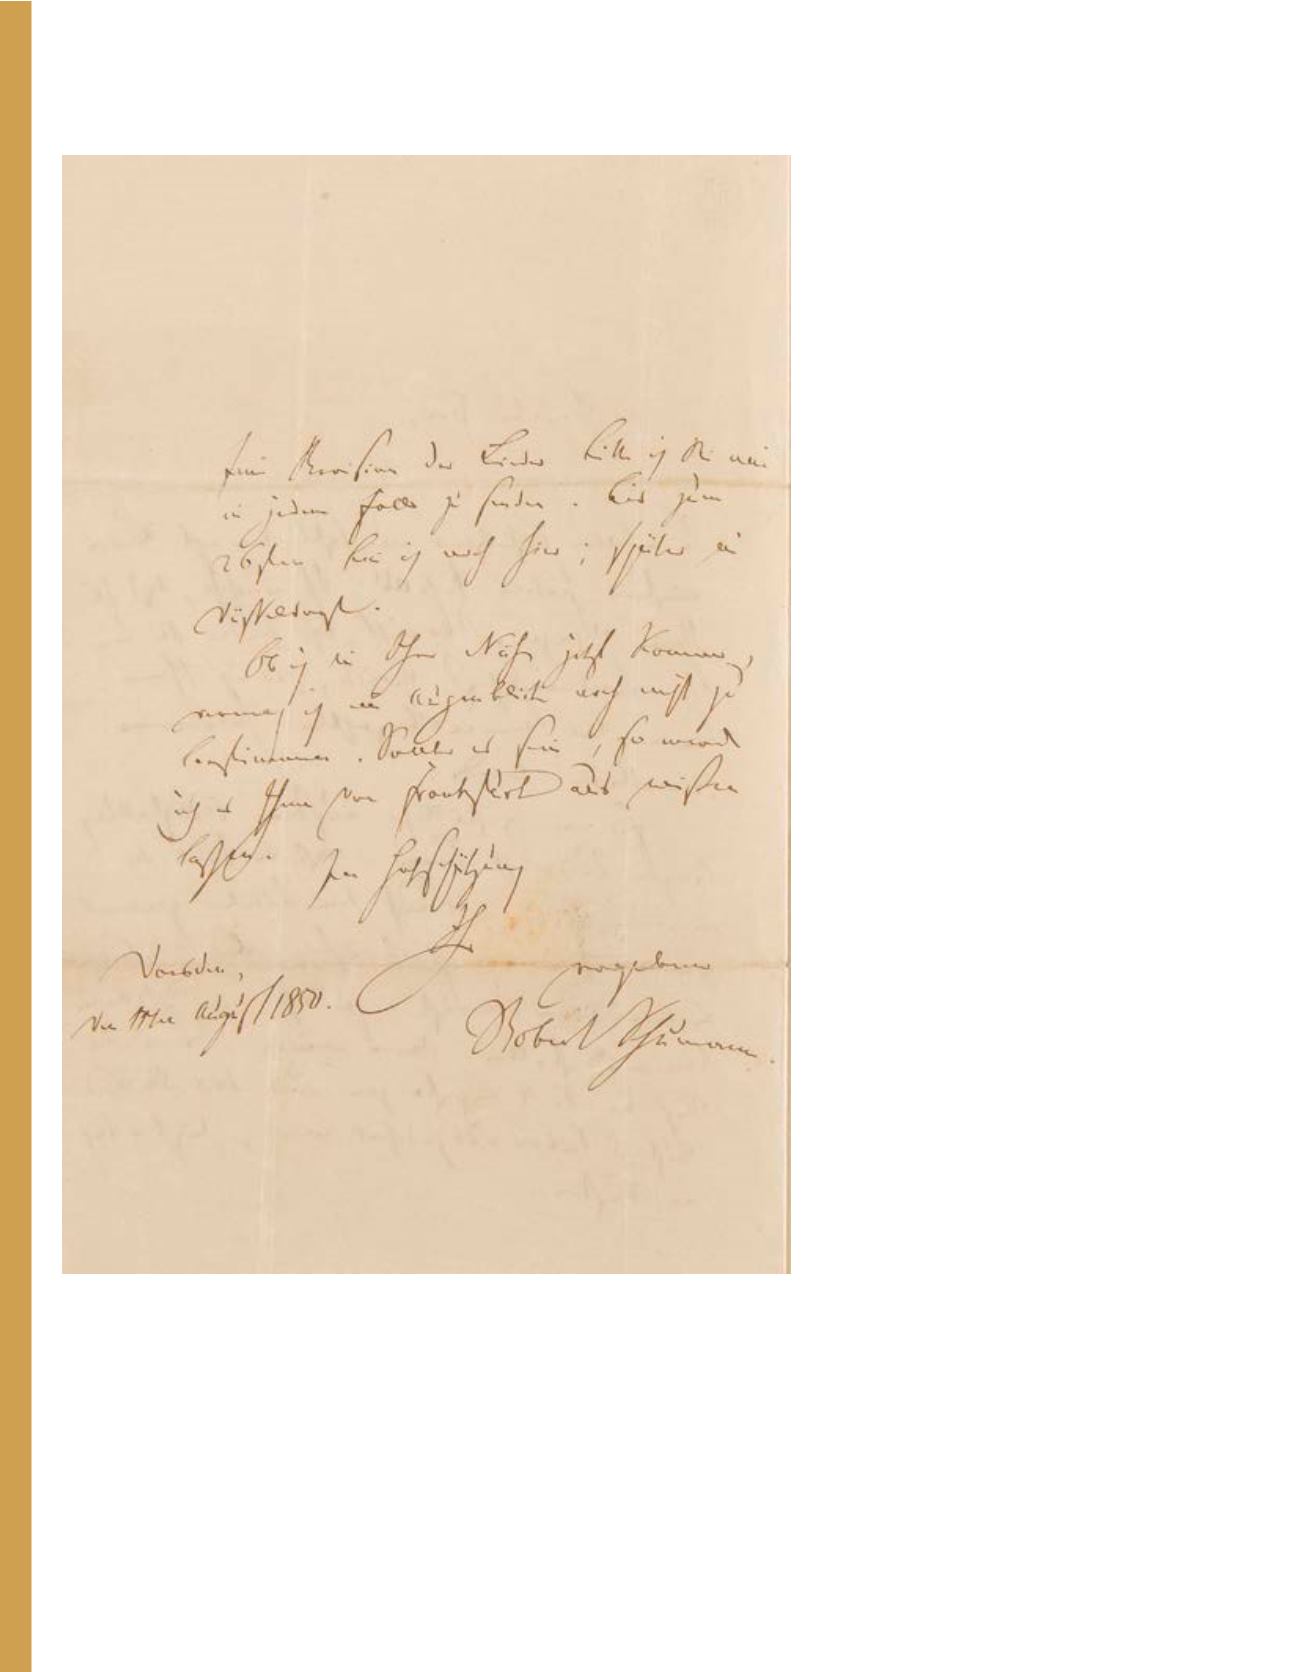 Eine Revision der Lieder bitte ich Sie mir
in jedem Falle zu senden. Bis zum
26sten bin ich noch hier; später in
Düsseldorf.
Ob ich in Ihre Nähe jetzt komme,
vermag ich im Augenblick noch nicht zu
bestimmen. Sollte es sein, so werde
ich es Ihnen von Frankfurt aus wissen
lassen.
Hochschätzung
Ihr
ergebener
Dresden,
den August 1850.
Robert Schumann.